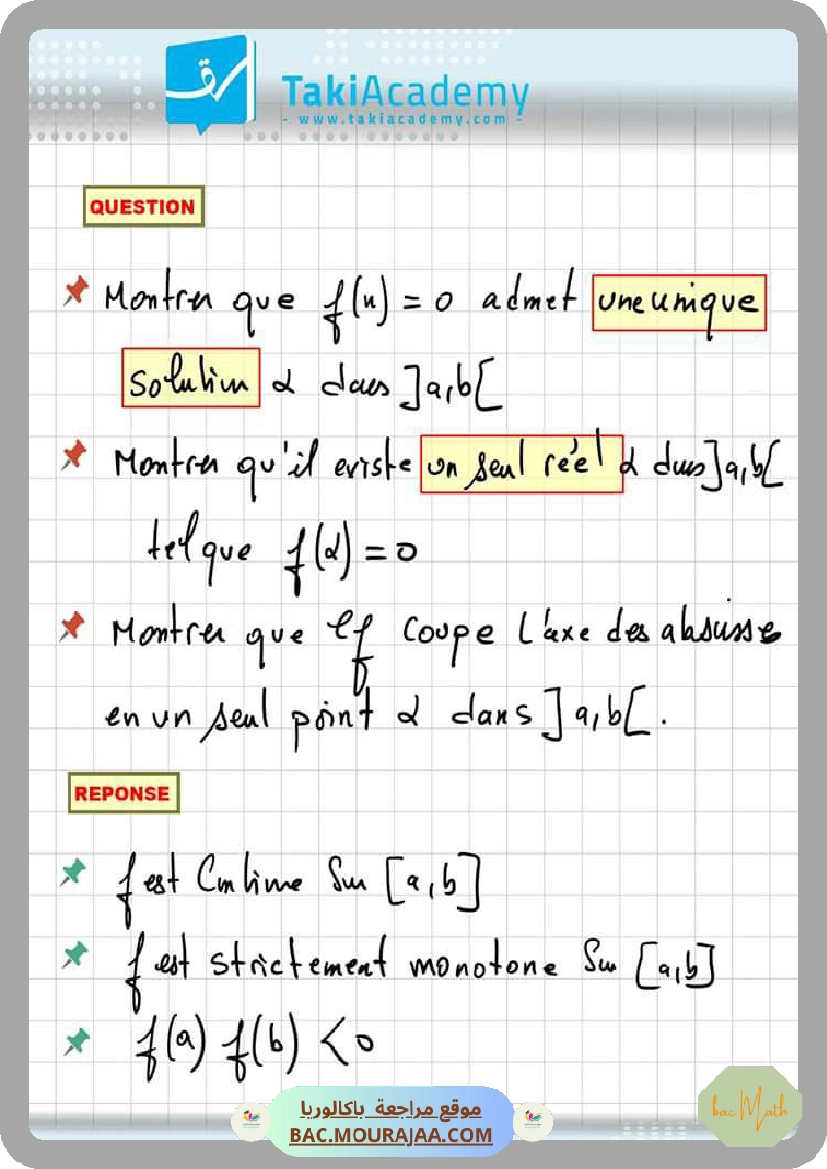 سرق
TakiAcademy
- www.takiacademy.com -
QUESTION
Montrer que f(x) = 0 admet une unique
solution α dans ]a,b[
Montrer qu'il existe un seul réel α dans ]a,b[
tel que f(α) = 0
Montrer que Cf coupe l'axe des absisse
en un seul point α dans ]a,b[.
REPONSE
f est Continue Sur [a,b]
f est strictement monotone Sur [a,b]
f(a) f(b) < 0
موقع مراجعة باكالوريا
BAC.MOURAJAA.COM
bac Math